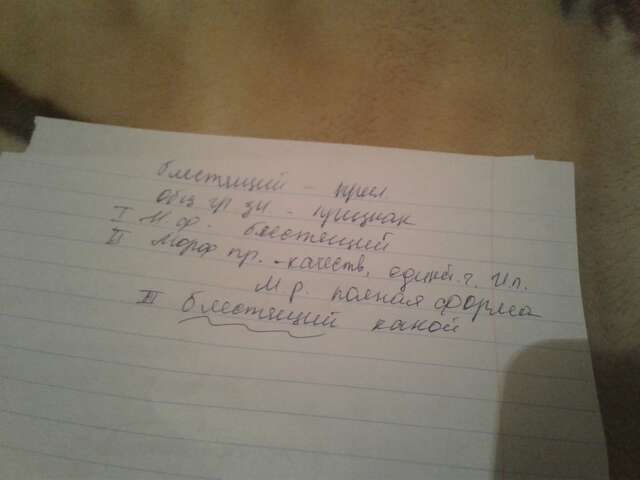 блестящий - прил
Общ гр зн. - признак
I Н. ф. блестящий
II Морф пр. - качеств, единст. ч. И п.
М р. полная форма
III блестящий какой